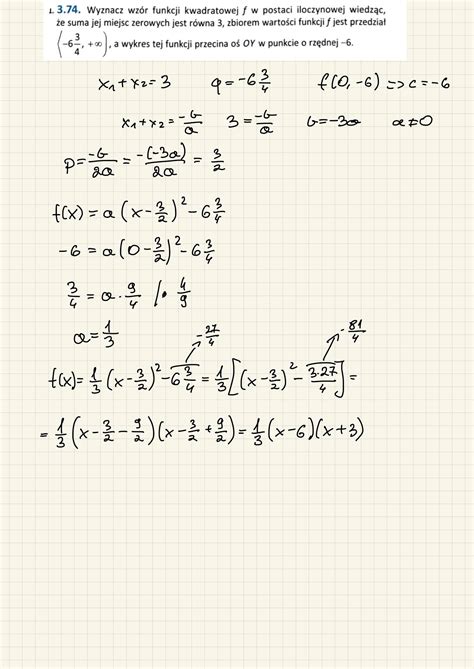 1. 3.74. Wyznacz wzór funkcji kwadratowej f w postaci iloczynowej wiedząc,
że suma jej miejsc zerowych jest równa 3, zbiorem wartości funkcji f jest przedział
⟨-6 3/4, +∞), a wykres tej funkcji przecina oś OY w punkcie o rzędnej –6.
x₁+x₂=3 q=-6 3/4 f(0,-6) => c=-6
x₁+x₂=-b/a 3=-b/a b=-3a a≠0
p=-b/2a=-(-3a)/2a=3/2
f(x)=a(x-3/2)²-6 3/4
-6=a(0-3/2)²-6 3/4
3/4=a·9/4 /·4/9
a=1/3 -27/4 -81/4
f(x)=1/3(x-3/2)²-6 3/4=1/3[(x-3/2)²-3·27/4]=
=1/3(x-3/2-9/2)(x-3/2+9/2)=1/3(x-6)(x+3)